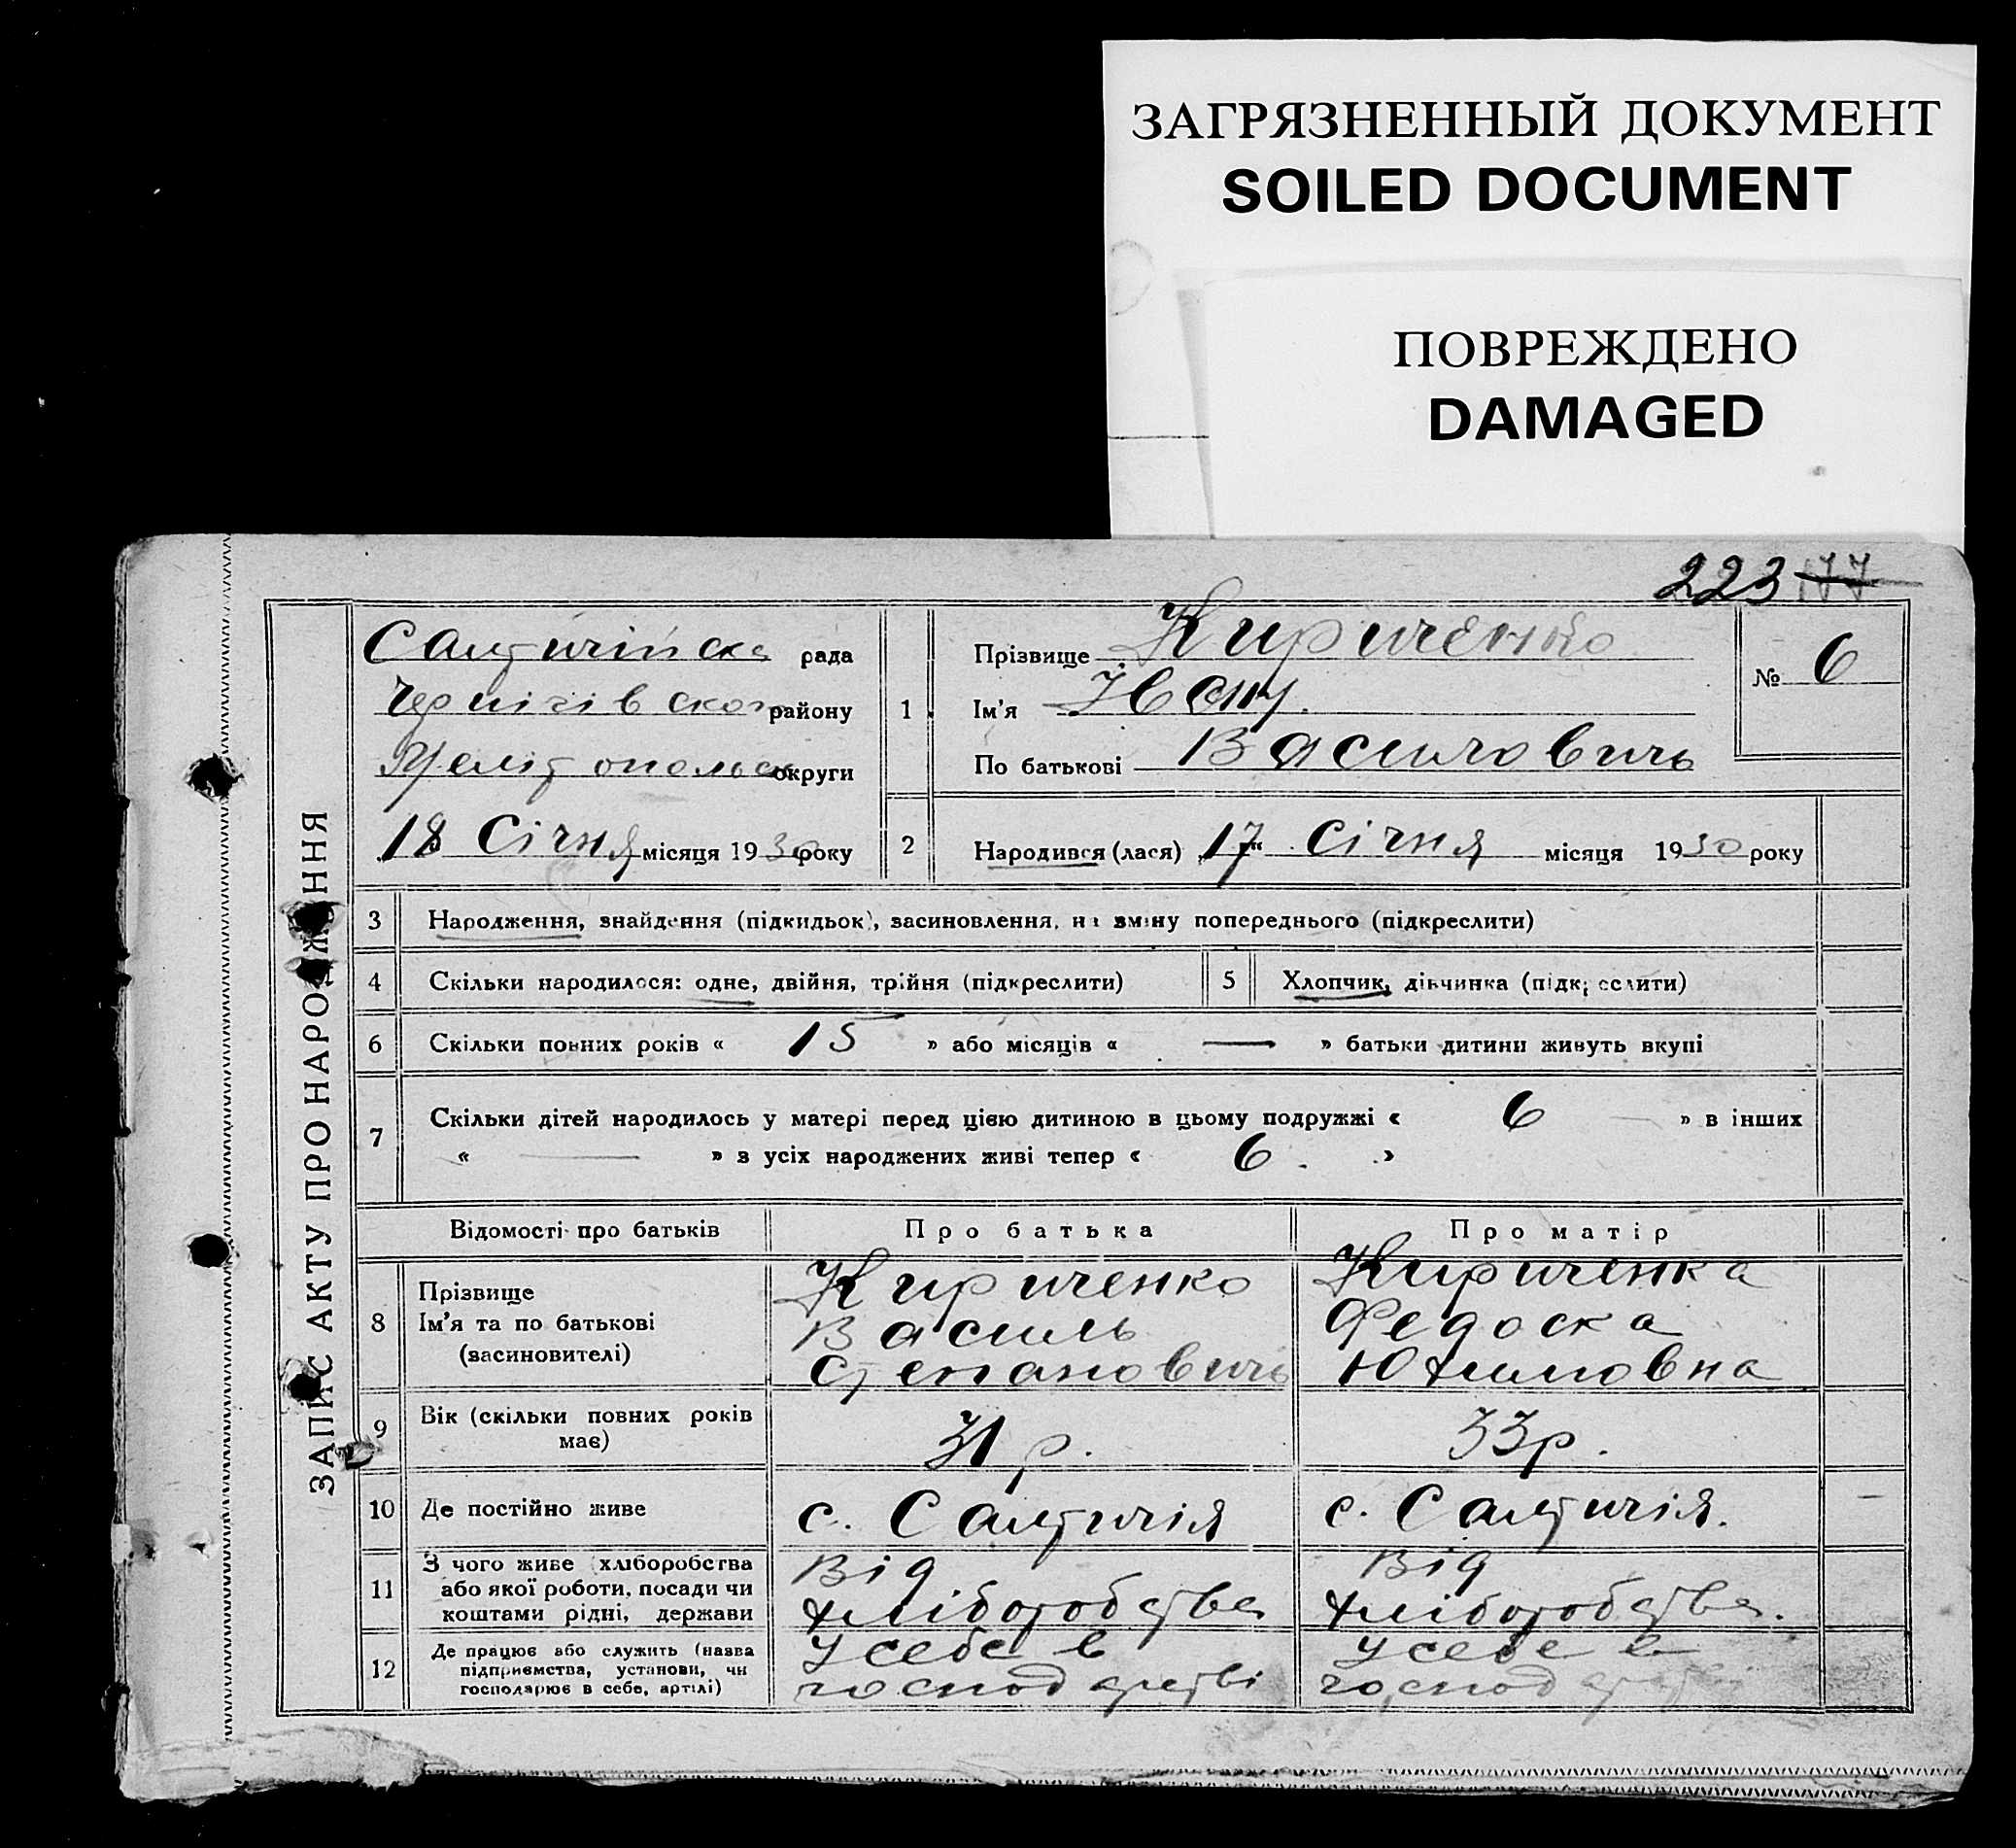 ЗАГРЯЗНЕННЫЙ ДОКУМЕНТ
SOILED DOCUMENT
ПОВРЕЖДЕНО
DAMAGED
223 177
ЗАПИС АКТУ ПРО НАРОДЖЕННЯ
Салтичійська рада
Чернігівского району
Мелітопольск округи
18 Січня місяця 1930 року
1 Прізвище Кириченко
Ім'я Іван
По батькові Василовичь
№ 6
2 Народився (лася) „17“ Січня місяця 1930 року
3 Народження, знайдення (підкидьок), засиновлення, на зміну попереднього (підкреслити)
4 Скільки народилося: одне, двійня, трійня (підкреслити)
5 Хлопчик, дівчинка (підкреслити)
6 Скільки повних років « 15 » або місяців « — » батьки дитини живуть вкупі
7 Скільки дітей народилось у матері перед цією дитиною в цьому подружжі « 6 — » в інших
« — » з усіх народжених живі тепер « 6. »
Відомості про батьків Про батька Про матір
8 Прізвище
Ім'я та по батькові
(засиновителі)
Кириченко
Василь
Степановичь
Кириченка
Федоска
Юхимовна
9 Вік (скільки повних років
має)
31 р.
33 р.
10 Де постійно живе
с. Салтичія
с. Салтичія.
11 З чого живе (хліборобства
або якої роботи, посади чи
коштами рідні, держави
Від
хліборобства
Від
хліборобства.
12 Де працює або служить (назва
підприємства, установи, чи
господарює в себе, артілі)
У себе в
господарстві
У себе в
господарстві